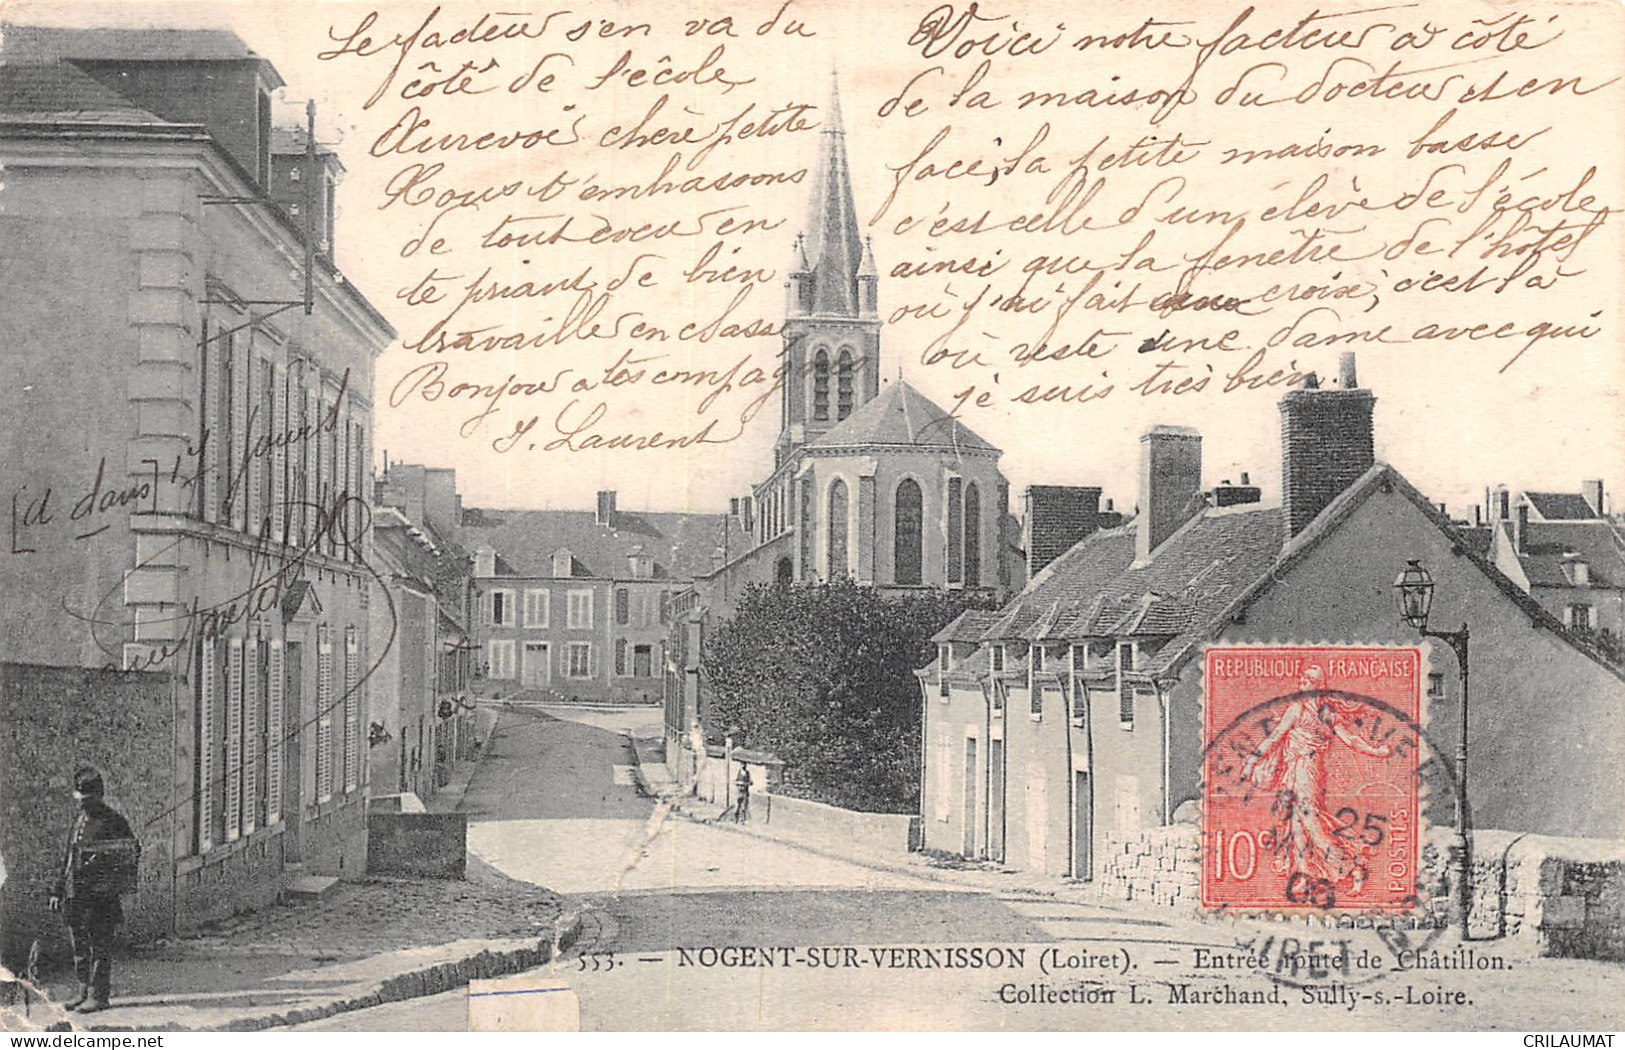 Le facteur s'en va du
côté de l'école,
Aurevoi chère petite
Nous t'embrassons
de tout coeur en
te priant de bien
travailler en classe
Bonjour a tes compagnes
J. Laurent
Voici notre facteur à côté
de la maison du docteur et en
face, la petite maison basse
c'est celle d'un élève de l'école
ainsi que la fenêtre de l'hôtel
où j'ai fait une croix, c'est là
où reste une dame avec qui
je suis très bien.
[à dans] 17 jours
RÉPUBLIQUE FRANÇAISE
10c
POSTES
25
MARS
06
LOIRET
553. — NOGENT-SUR-VERNISSON (Loiret). — Entrée route de Châtillon.
Collection L. Marchand, Sully-s.-Loire.
CRILAUMAT